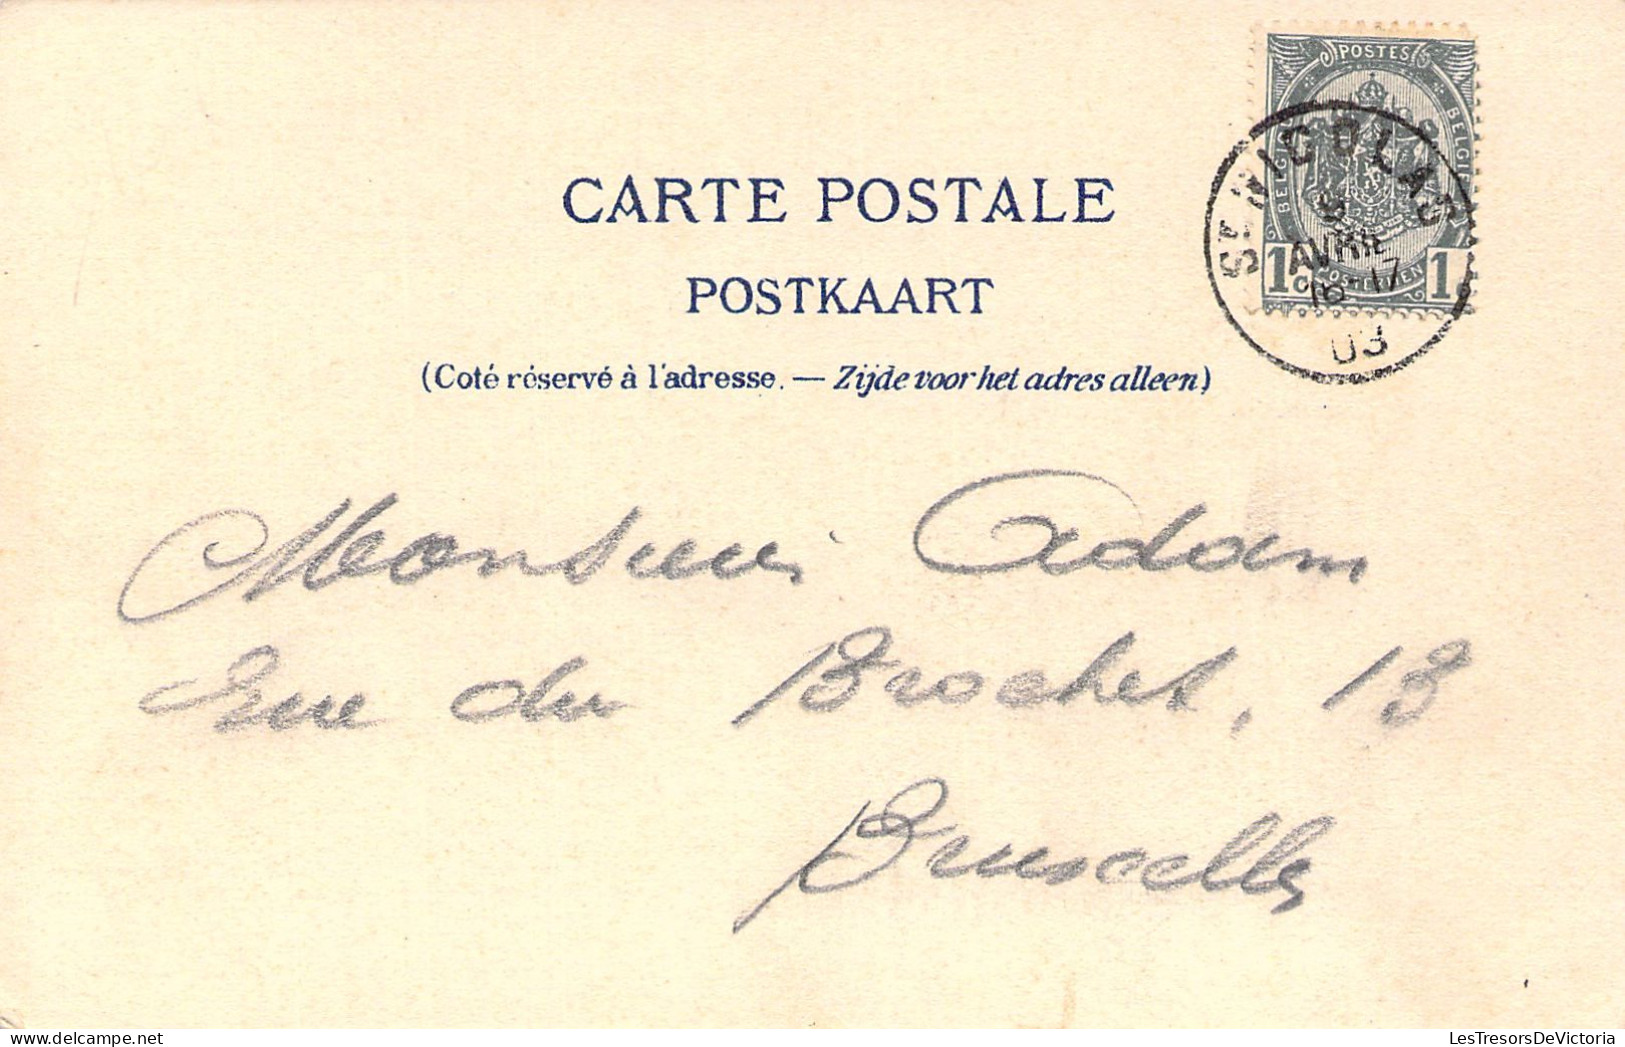 POSTES
BELGIQUE BELGIË
1c POSTERIJEN 1c
ST NICOLAS
AVRIL
16-17
03
CARTE POSTALE
POSTKAART
(Coté réservé à l'adresse. — Zijde voor het adres alleen)
Monsieur Adam
Rue du Brochet, 13
Bruxelles
LesTresorsDeVictoria